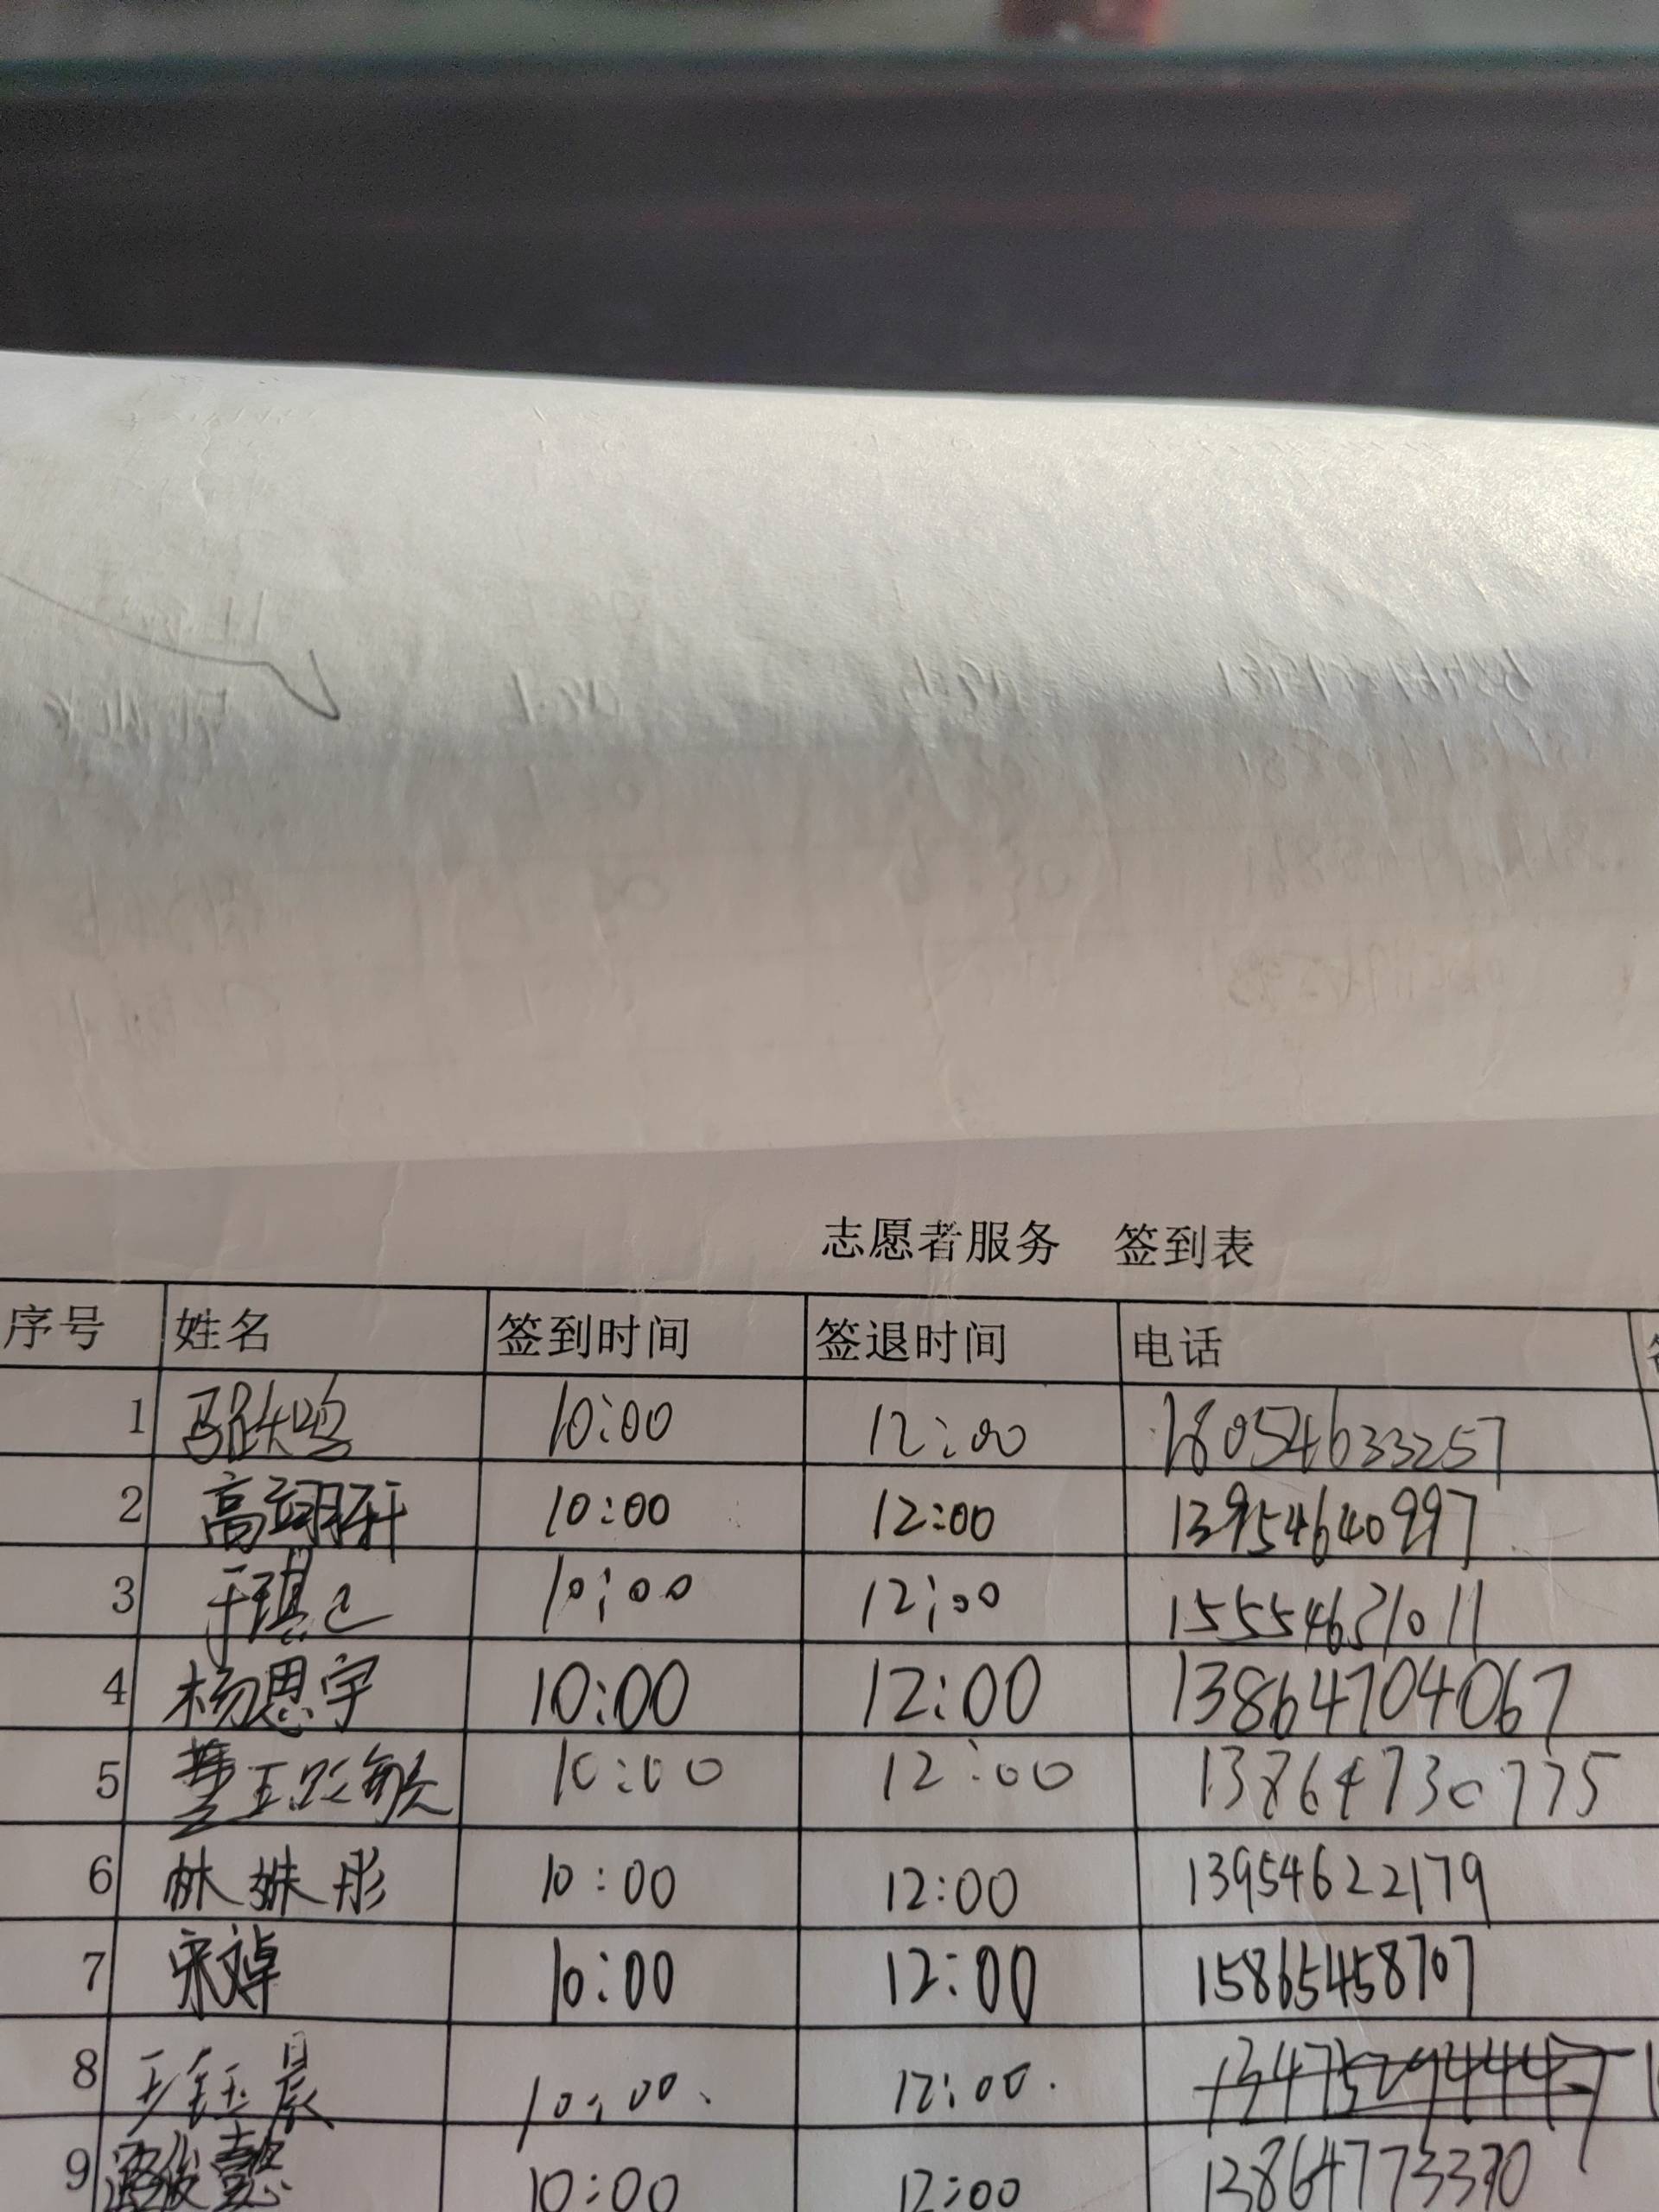 志愿者服务 签到表
序号 姓名 签到时间 签退时间 电话
1 马跃鸣 10:00 12:00 18054633257
2 高翊轩 10:00 12:00 13954640997
3 于琪 10:00 12:00 15554631011
4 杨思宇 10:00 12:00 13864704067
5 10:00 12:00 13864730775
6 林姝彤 10:00 12:00 13954622179
7 宋文卓 10:00 12:00 15865458707
8 王钰晨 10:00 12:00
9 10:00 12:00 13864773370